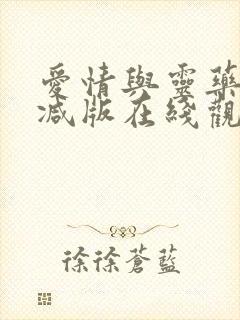 愛情與靈藥
减版在綫觀
徐徐蒼藍